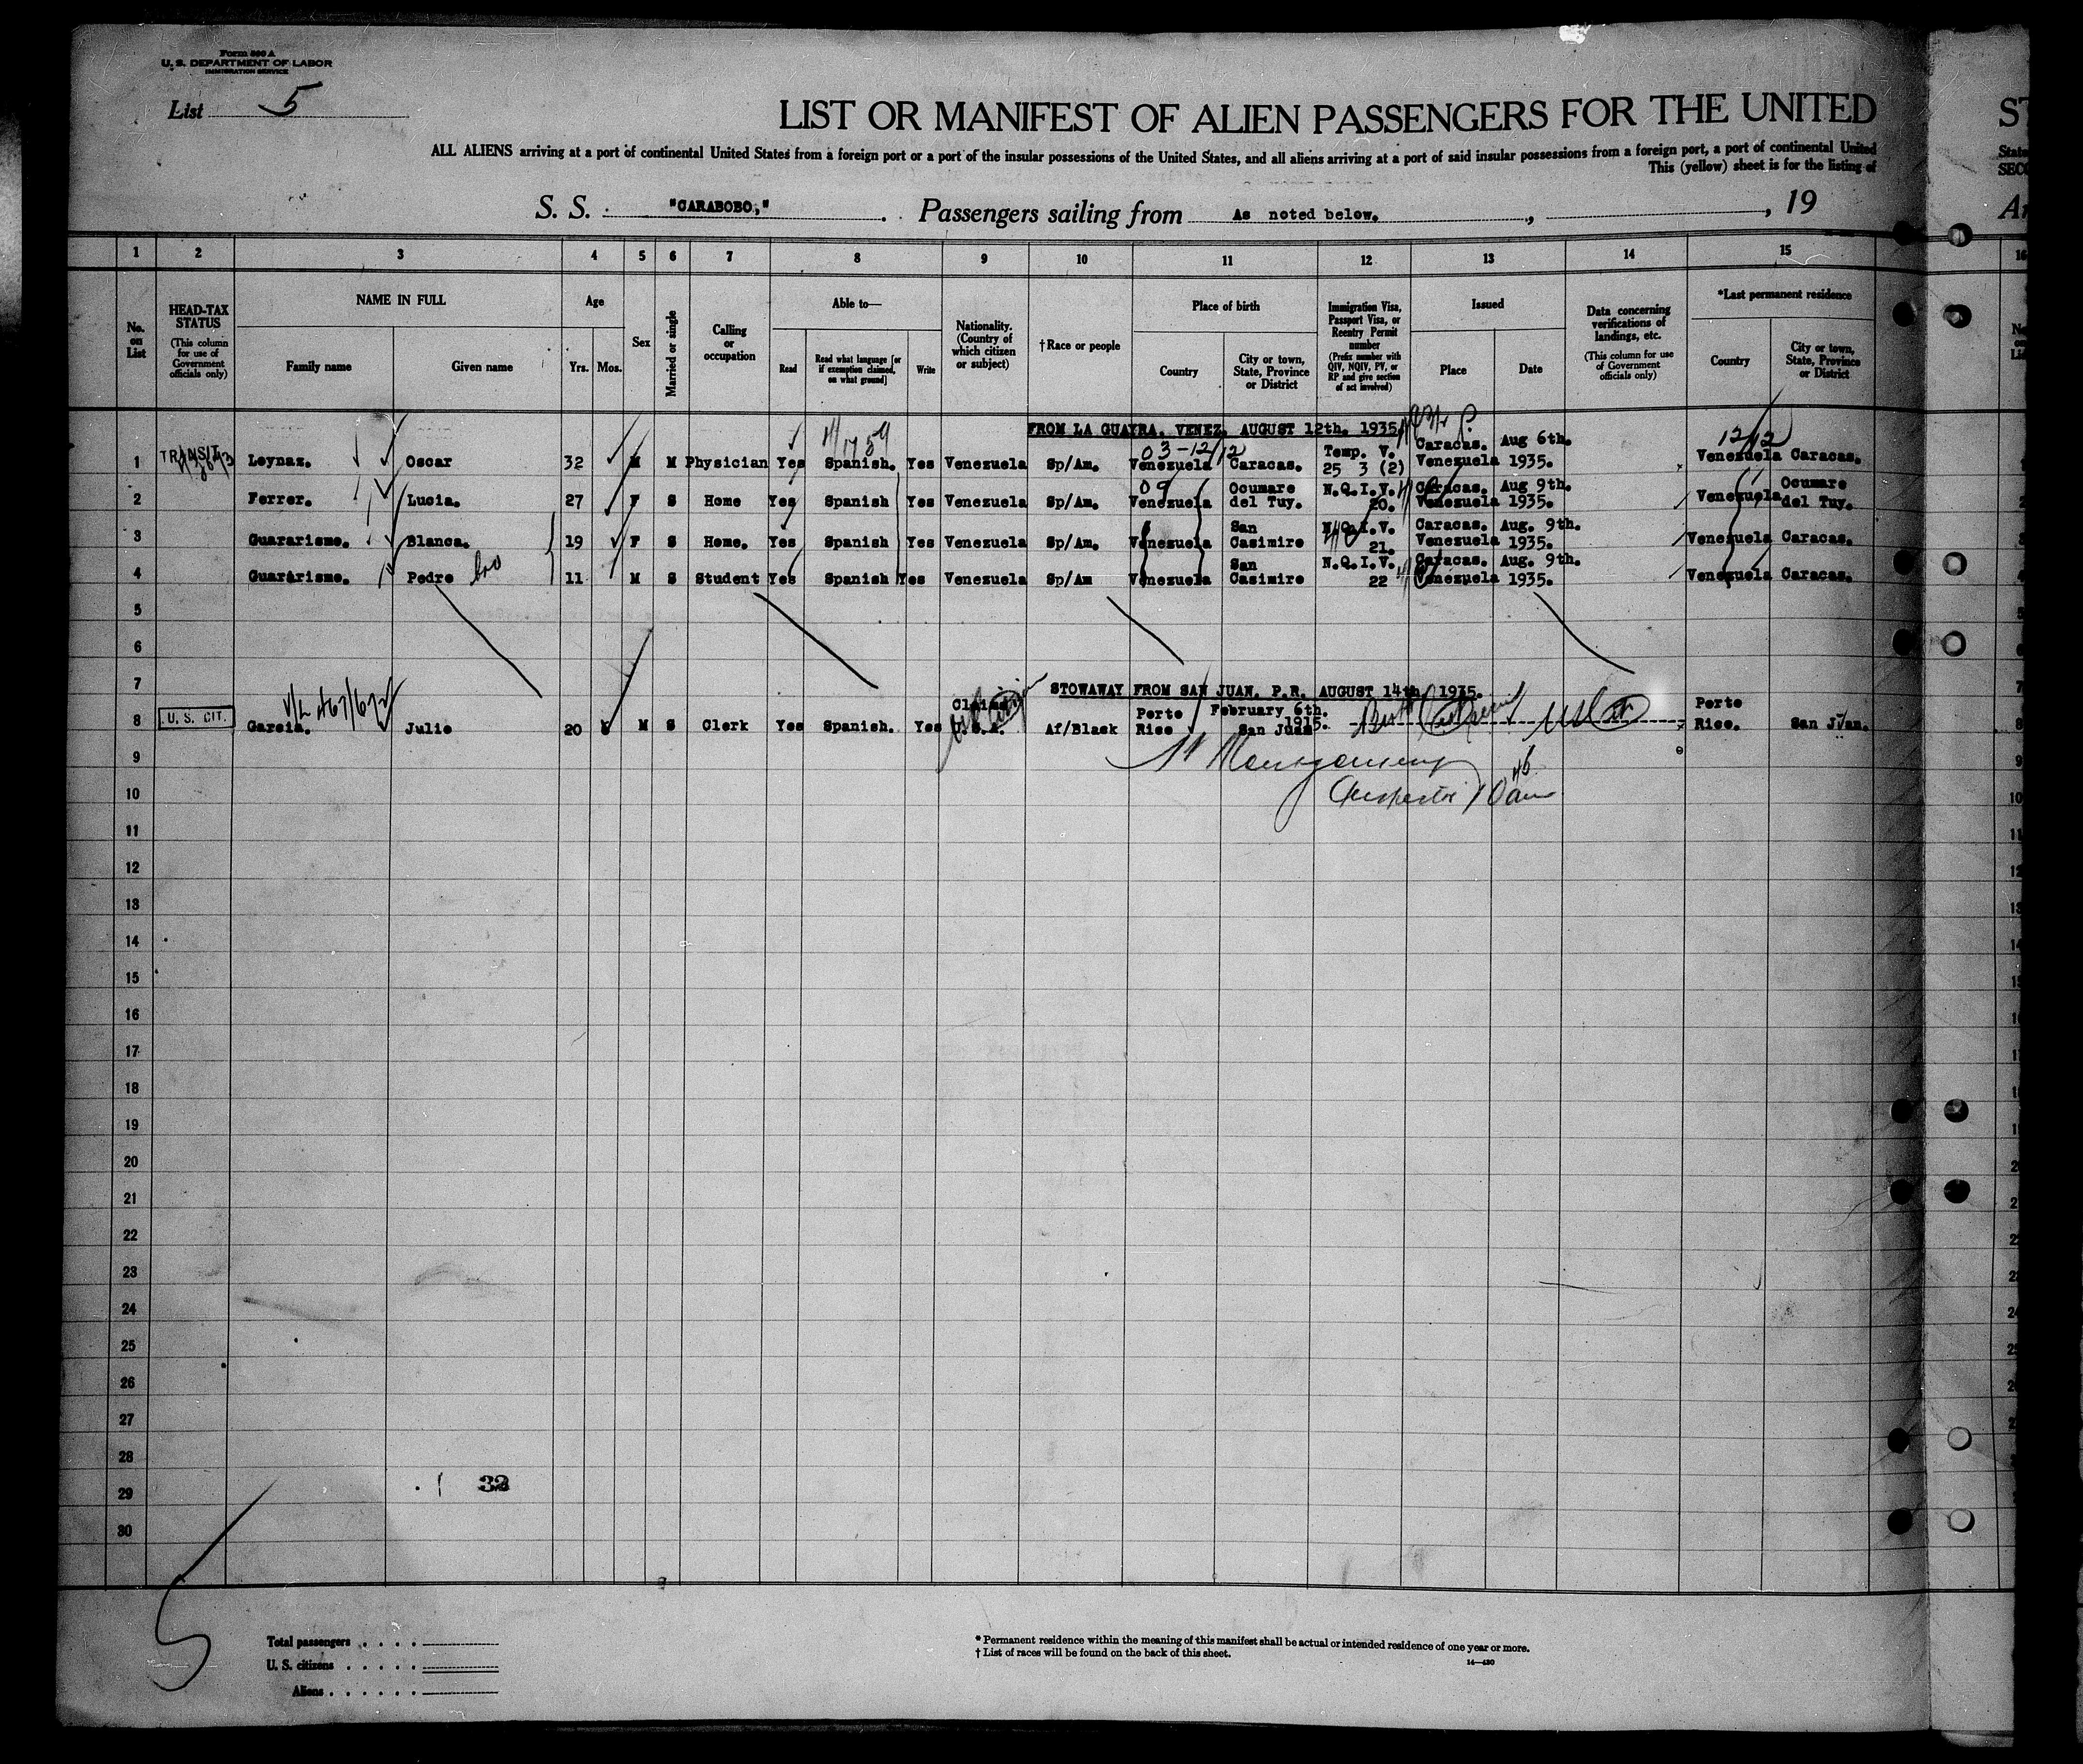 Form 500 A
U. S. DEPARTMENT OF LABOR
IMMIGRATION SERVICE
List 5
LIST OR MANIFEST OF ALIEN PASSENGERS FOR THE UNITED
ALL ALIENS arriving at a port of continental United States from a foreign port or a port of the insular possessions of the United States, and all aliens arriving at a port of said insular possessions from a foreign port, a port of continental United
This (yellow) sheet is for the listing of
S. S. "CARABOBO," Passengers sailing from As noted below. , , 19
1 2 3 4 5 6 7 8 9 10 11 12 13 14 15
No. on List
HEAD-TAX STATUS (This column for use of Government officials only)
NAME IN FULL
Family name
Given name
Age
Yrs. Mos.
Sex
Married or single
Calling or occupation
Able to—
Read
Read what language [or if exemption claimed, on what ground]
Write
Nationality. (Country of which citizen or subject)
† Race or people
Place of birth
Country
City or town, State, Province or District
Immigration Visa, Passport Visa, or Reentry Permit number (Prefix number with QIV, NQIV, PV, or RP and give section of act involved)
Issued
Place
Date
Data concerning verifications of landings, etc. (This column for use of Government officials only)
*Last permanent residence
Country
City or town, State, Province or District
FROM LA GUAYRA. VENEZ. AUGUST 12th. 1935.
1 TRANSIT Loynaz. Oscar 32 M M Physician Yes Spanish. Yes Venezuela Sp/Am. Venezuela Caracas. Temp. V. 25 3 (2) Caracas. Venezuela Aug 6th. 1935. Venezuela Caracas.
2 Ferrer. Lucia. 27 F S Home Yes Spanish Yes Venezuela Sp/Am. Venezuela Ocumare del Tuy. N.Q.I.V. 20. Caracas. Venezuela Aug 9th. 1935. Venezuela Ocumare del Tuy.
3 Guararismo. Blanca. 19 F S Home. Yes Spanish Yes Venezuela Sp/Am. Venezuela San Casimiro N.Q.I.V. 21. Caracas. Venezuela Aug. 9th. 1935. Venezuela Caracas.
4 Guararismo. Pedro bro 11 M S Student Yes Spanish Yes Venezuela Sp/Am Venezuela San Casimiro N.Q.I.V. 22 Caracas. Venezuela Aug. 9th. 1935. Venezuela Caracas.
5
6
7 STOWAWAY FROM SAN JUAN. P.R. AUGUST 14th. 1935.
8 U. S. CIT. Garcia. Julio 20 M S Clerk Yes Spanish. Yes Claims U.S.A. Af/Black Porto Rico February 6th. 1915. San Juan Porto Rico. San Juan.
9
10
11
12
13
14
15
16
17
18
19
20
21
22
23
24
25
26
27
28
29 32
30
5
Total passengers
U. S. citizens
Aliens
* Permanent residence within the meaning of this manifest shall be actual or intended residence of one year or more.
† List of races will be found on the back of this sheet.
14—430